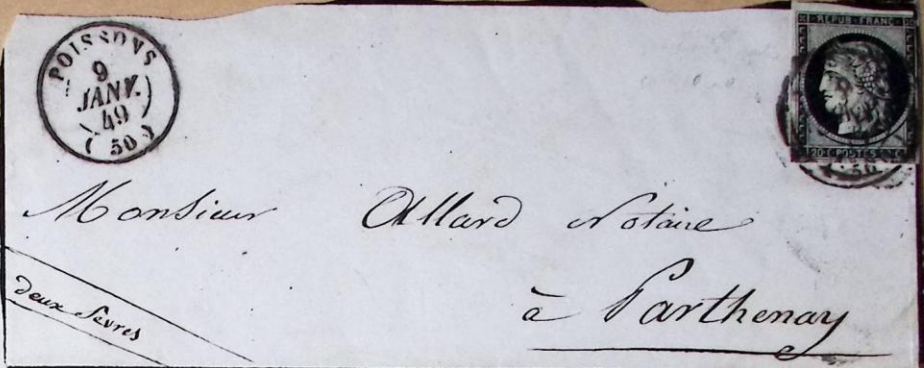 POISSONS
9
JANV.
49
(50)
REPUB. FRANC.
20 C POSTES 20 C
Monsieur Allard Notaire
à Parthenay
deux Sevres